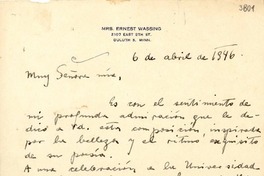 3801
MRS. ERNEST WASSING
2107 EAST 5TH ST.
DULUTH 5, MINN.
6 de abril de 1946.
Muy Señora mía,
Es con el sentimiento de
mi profunda admiración que le de-
dico a Vd. esta composición, inspirada
por la belleza y el ritmo exquisito
de su poesía.
A una celebración a la Universidad